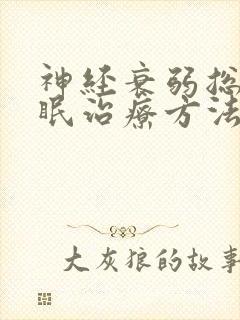 神经衰弱总
眠治疗方法
大灰狼的故事